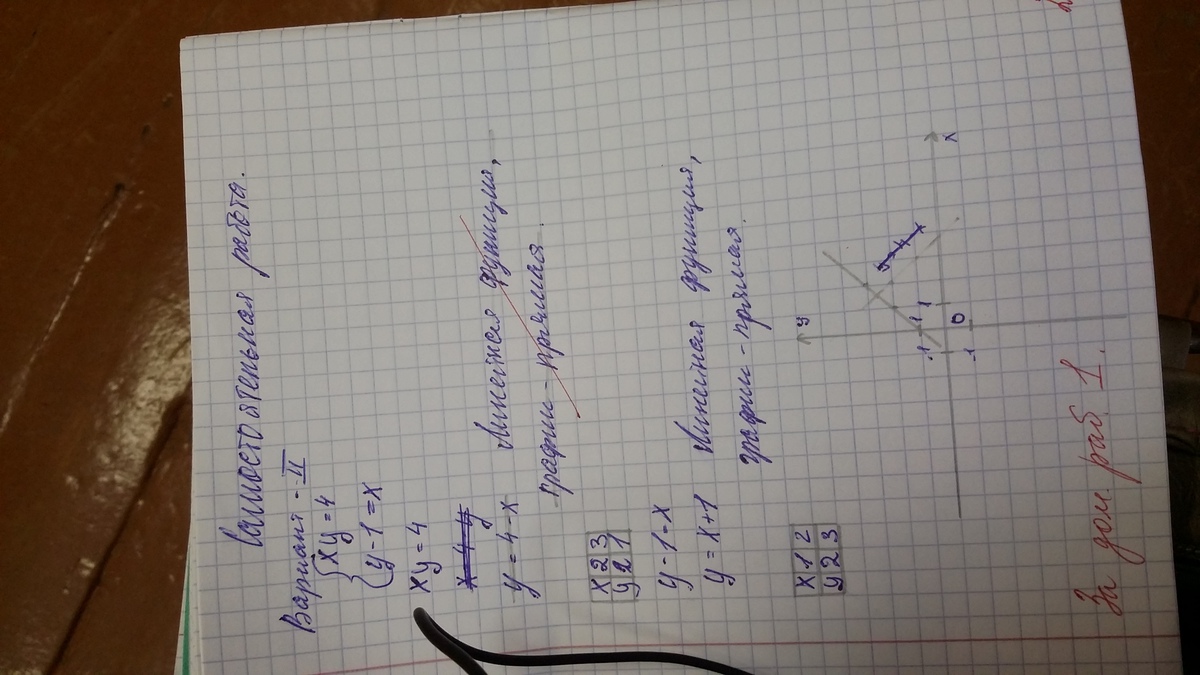 Самостоятельная работа.
Вариант - II
{ xy = 4
{ y - 1 = x
xy = 4
y = 4 - x Линейная функция,
график - прямая.
x 2 3
y 2 1
y - 1 = x
y = x + 1 Линейная функция,
график - прямая.
x 1 2
y 2 3
y
1
-1 1
0 x
-1
За дом. раб 1.